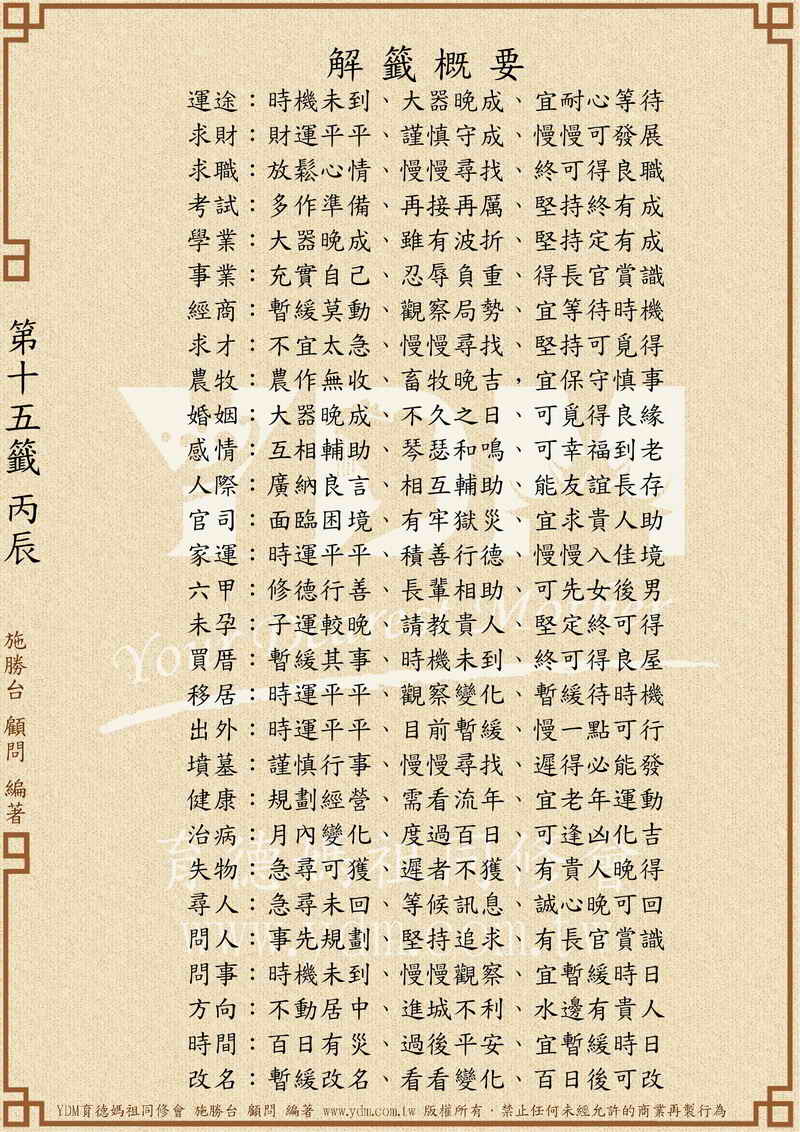 解籤概要
運途：時機未到、大器晚成、宜耐心等待
求財：財運平平、謹慎守成、慢慢可發展
求職：放鬆心情、慢慢尋找、終可得良職
考試：多作準備、再接再厲、堅持終有成
學業：大器晚成、雖有波折、堅持定有成
事業：充實自己、忍辱負重、得長官賞識
經商：暫緩莫動、觀察局勢、宜等待時機
求才：不宜太急、慢慢尋找、堅持可覓得
農牧：農作無收、畜牧晚吉，宜保守慎事
婚姻：大器晚成、不久之日、可覓得良緣
感情：互相輔助、琴瑟和鳴、可幸福到老
人際：廣納良言、相互輔助、能友誼長存
官司：面臨困境、有牢獄災、宜求貴人助
家運：時運平平、積善行德、慢慢入佳境
六甲：修德行善、長輩相助、可先女後男
未孕：子運較晚、請教貴人、堅定終可得
買厝：暫緩其事、時機未到、終可得良屋
移居：時運平平、觀察變化、暫緩待時機
出外：時運平平、目前暫緩、慢一點可行
墳墓：謹慎行事、慢慢尋找、遲得必能發
健康：規劃經營、需看流年、宜老年運動
治病：月內變化、度過百日、可逢凶化吉
失物：急尋可獲、遲者不獲、有貴人晚得
尋人：急尋未回、等候訊息、誠心晚可回
問人：事先規劃、堅持追求、有長官賞識
問事：時機未到、慢慢觀察、宜暫緩時日
方向：不動居中、進城不利、水邊有貴人
時間：百日有災、過後平安、宜暫緩時日
改名：暫緩改名、看看變化、百日後可改
第十五籤 丙辰
施勝台 顧問 編著
YDM
Your Dearest Mother
育德媽祖同修會
www.ydm.com.tw
YDM育德媽祖同修會 施勝台 顧問 編著 www.ydm.com.tw 版權所有．禁止任何未經允許的商業再製行為